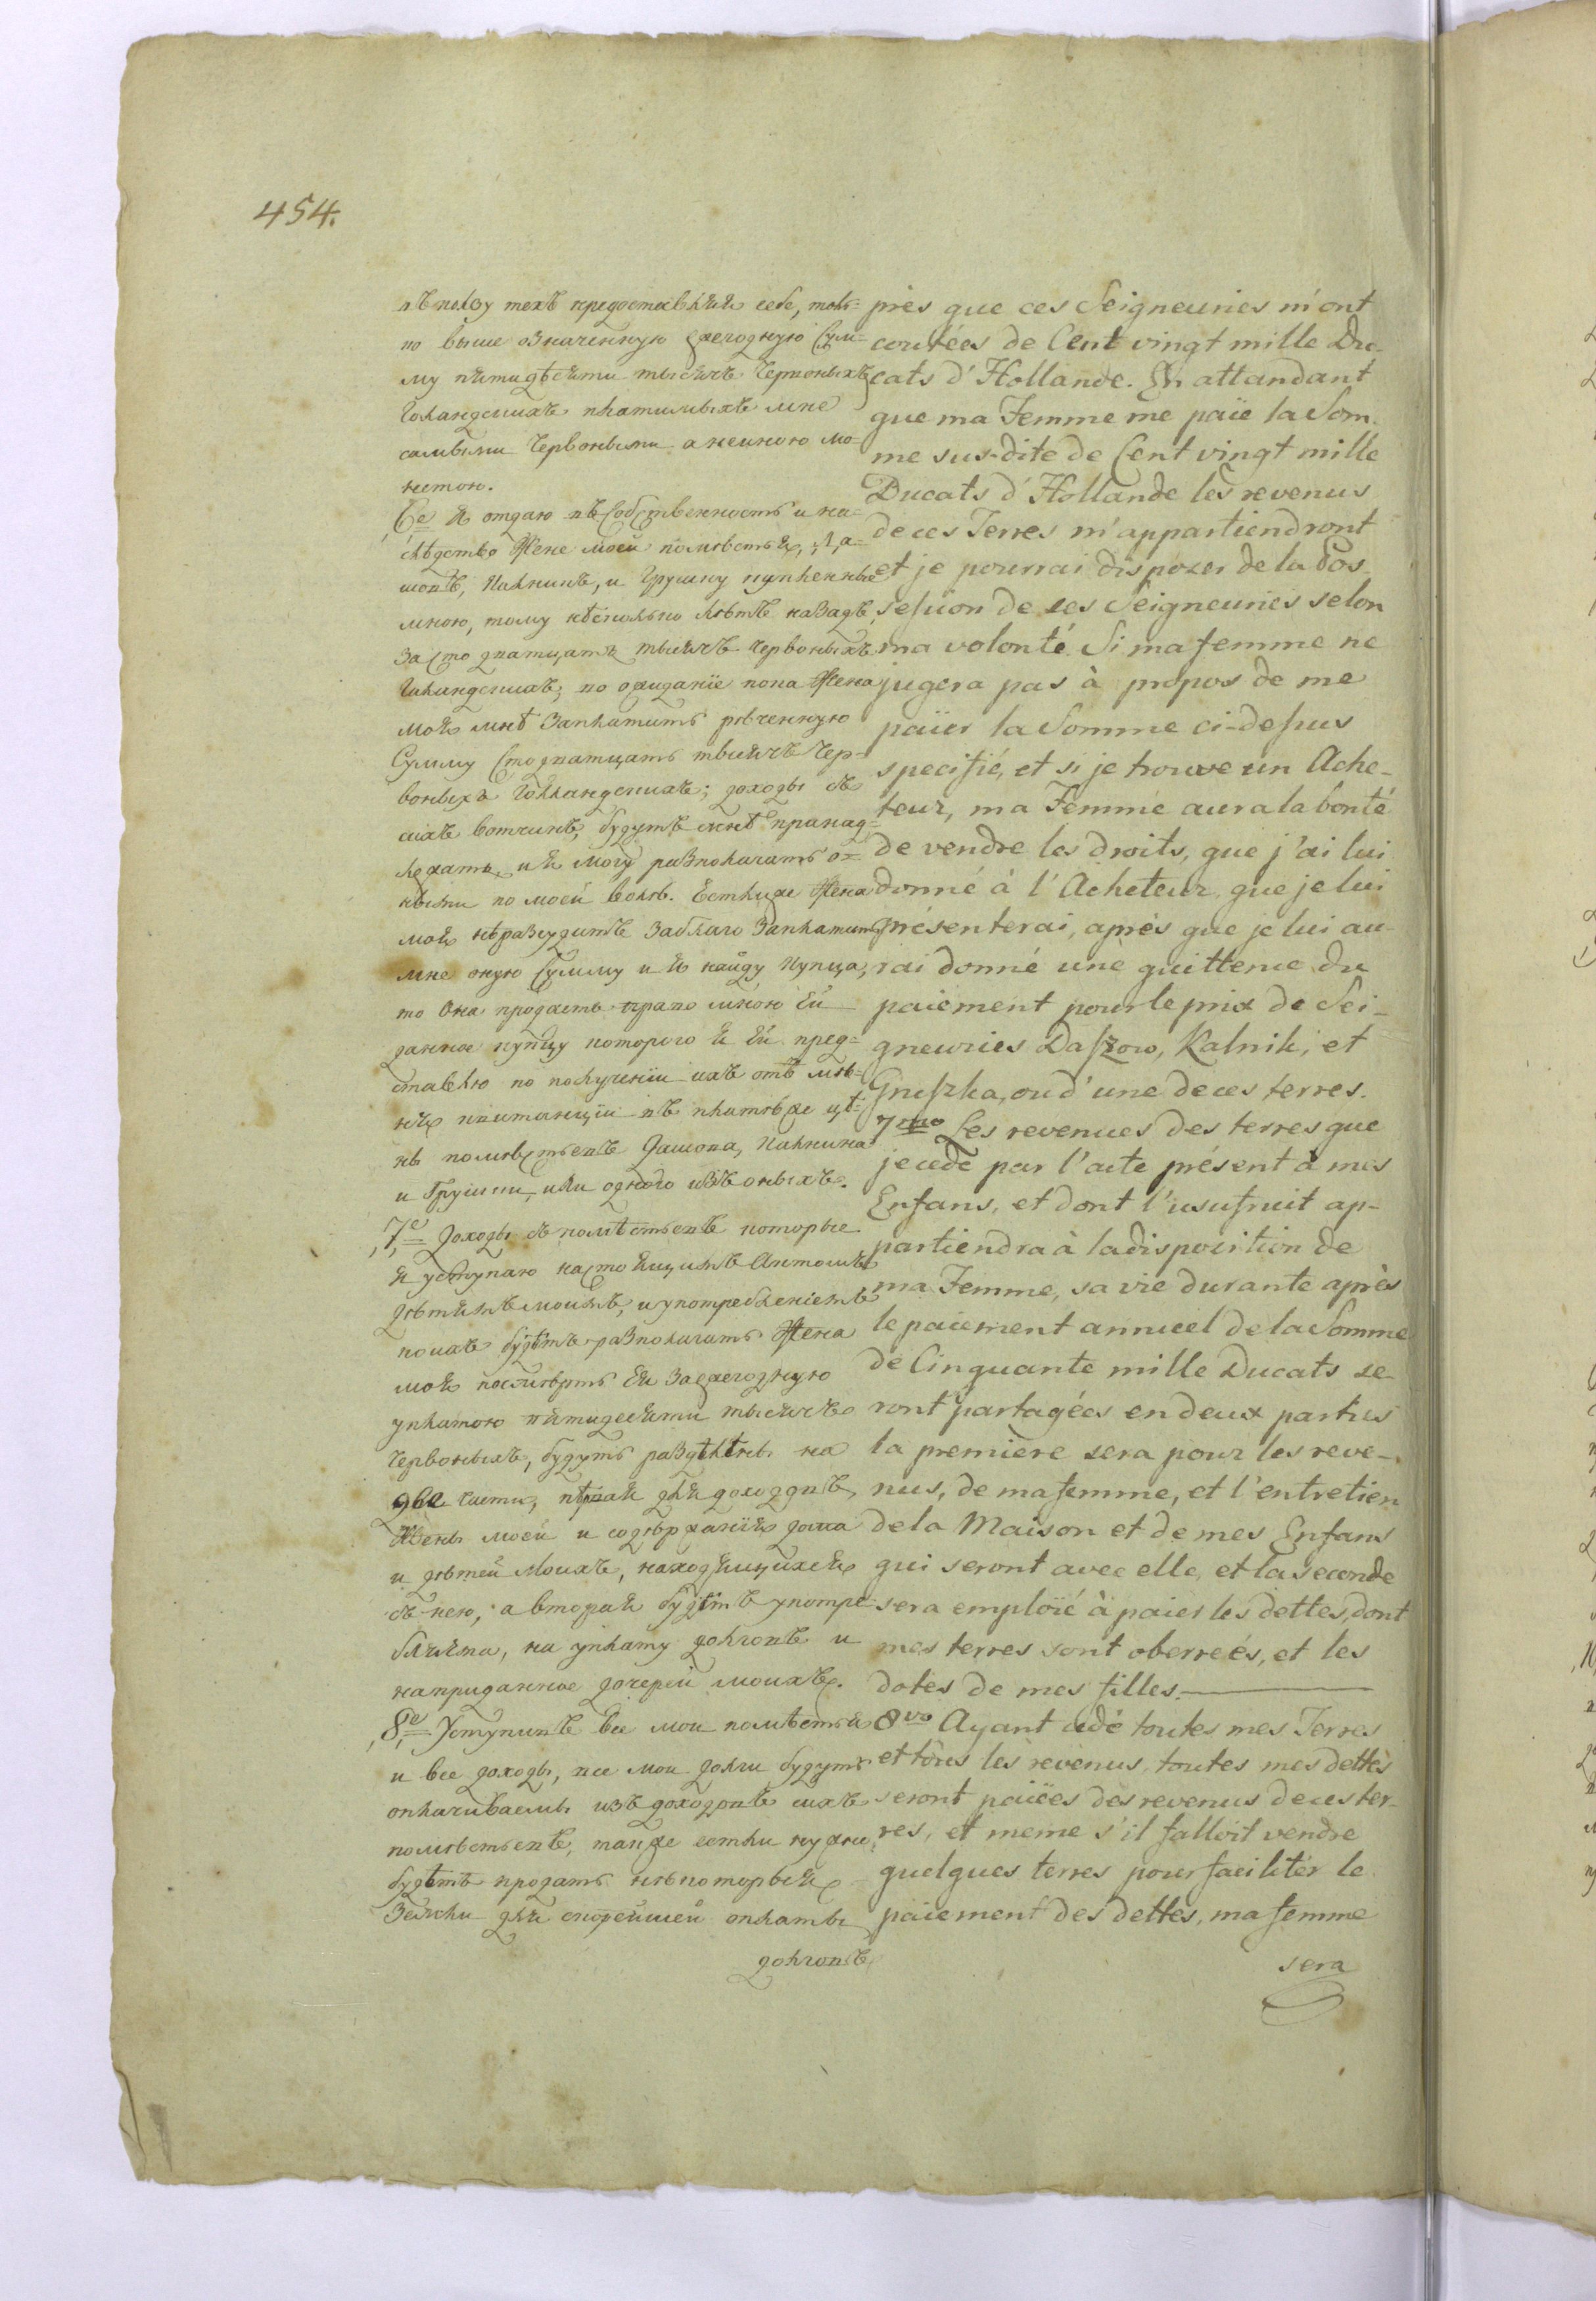 454.
въ пользу техъ предоставляя себе, толь=
ко выше означенную ежегодную Сум=
му пятидѣсяти тысячъ Червоныхъ
Голандскихъ платимыхъ мне
самыми Червоными а не иною мо=
нетою.
6е Я отдаю въ Собственность и на=
слѣдство Жене моей поместья, Да=
шовъ, Кальникъ, и Грушку купленные
мною, тому нѣсколько лѣтъ назадъ,
за сто дватцать тысячъ червоныхъ
Голандскихъ; во ожиданіе пока Жена
моя мнѣ Заплатить реченную
Сумму Сто дватцать тысячъ Чер=
воныхъ Голландскихъ; доходы съ
сихъ вотчинъ, будутъ мнѣ принад=
лежать, и я могу располагать о=
ными по моей воле. Естлиже Жена
моя нѣразсудитъ заблаго Заплатить
мне оную Сумму и я найду Купца,
то Она продасть право мною Ей
данное купцу котораго я Ей пред=
ставлю по полученіи ихъ отъ ме=
ня квитанціи въ платеже цѣ=
ны поместьевъ Дашова, Кальника
и Грушки, или одного изъ оныхъ.
7е Доходы съ поместьевъ которые
я уступаю настоящимъ Актомъ
детямъ моимъ, и употребленіемъ
коихъ будетъ располагать Жена
моя посмерть Ея За ежегодную
уплатою пятидесяти тысячъ
Червоныхъ, будутъ разделены на
две части, первая для доходовъ,
Жены моей и содержанія дома
и детей Моихъ, находящихся
съ нею, а вторая будетъ употре=
бляема, на уплату долговъ и
на приданное дочерей моихъ.
8е Уступивъ все мои поместья
и все доходы, все мои долги будутъ
оплачиваемы изъ доходовъ сихъ
поместьевъ, также естли нужно
будетъ продать некоторыя
Земли для скорейшей оплаты
долговъ
près que ces Seigneuries m'ont
coutées de Cent vingt mille Du-
cats d'Hollande. En attandant
que ma Femme me païe la Som-
me sus-dite de Cent vingt mille
Ducats d'Hollande les revenus
de ces Terres m'appartiendront
et je pourrai disposer de la Pos-
session de ses Seigneuries selon
ma volonté. Si ma femme ne
jugera pas à propos de me
païer la Somme ci-dessus
specifié, et si je trouve un Ache-
teur, ma Femme aura la bonté
de vendre les droits, que j'ai lui
donné à l'Acheteur que je lui
présenterai, après que je lui au-
rai donné une quittence du
paiement pour le prix de Sei-
gneuries Daszow, Kalnik, et
Gruszka, ou d'une de ces terres.
7mo Les revenues des terres que
je cede par l'acte présent à mes
Enfans, et dont l'usufruit ap-
partiendra à la disposition de
ma Femme, sa vie durante après
le paiement annuel de la Somme
de Cinquante mille Ducats se-
ront partagées en deux parties
la première sera pour les reve-
nus, de ma femme, et l'entretien
de la Maison et de mes Enfans
qui seront avec elle, et la seconde
sera emploïé à paier les dettes, dont
mes terres sont oberreés, et les
dotes de mes filles.
8vo Ayant cedé toutes mes Terres
et tous les revenus, toutes mes dettes
seront païées des revenus de ces ter-
res, et meme s'il falloit vendre
quelques terres pour faciliter le
paiement des dettes, ma femme
sera